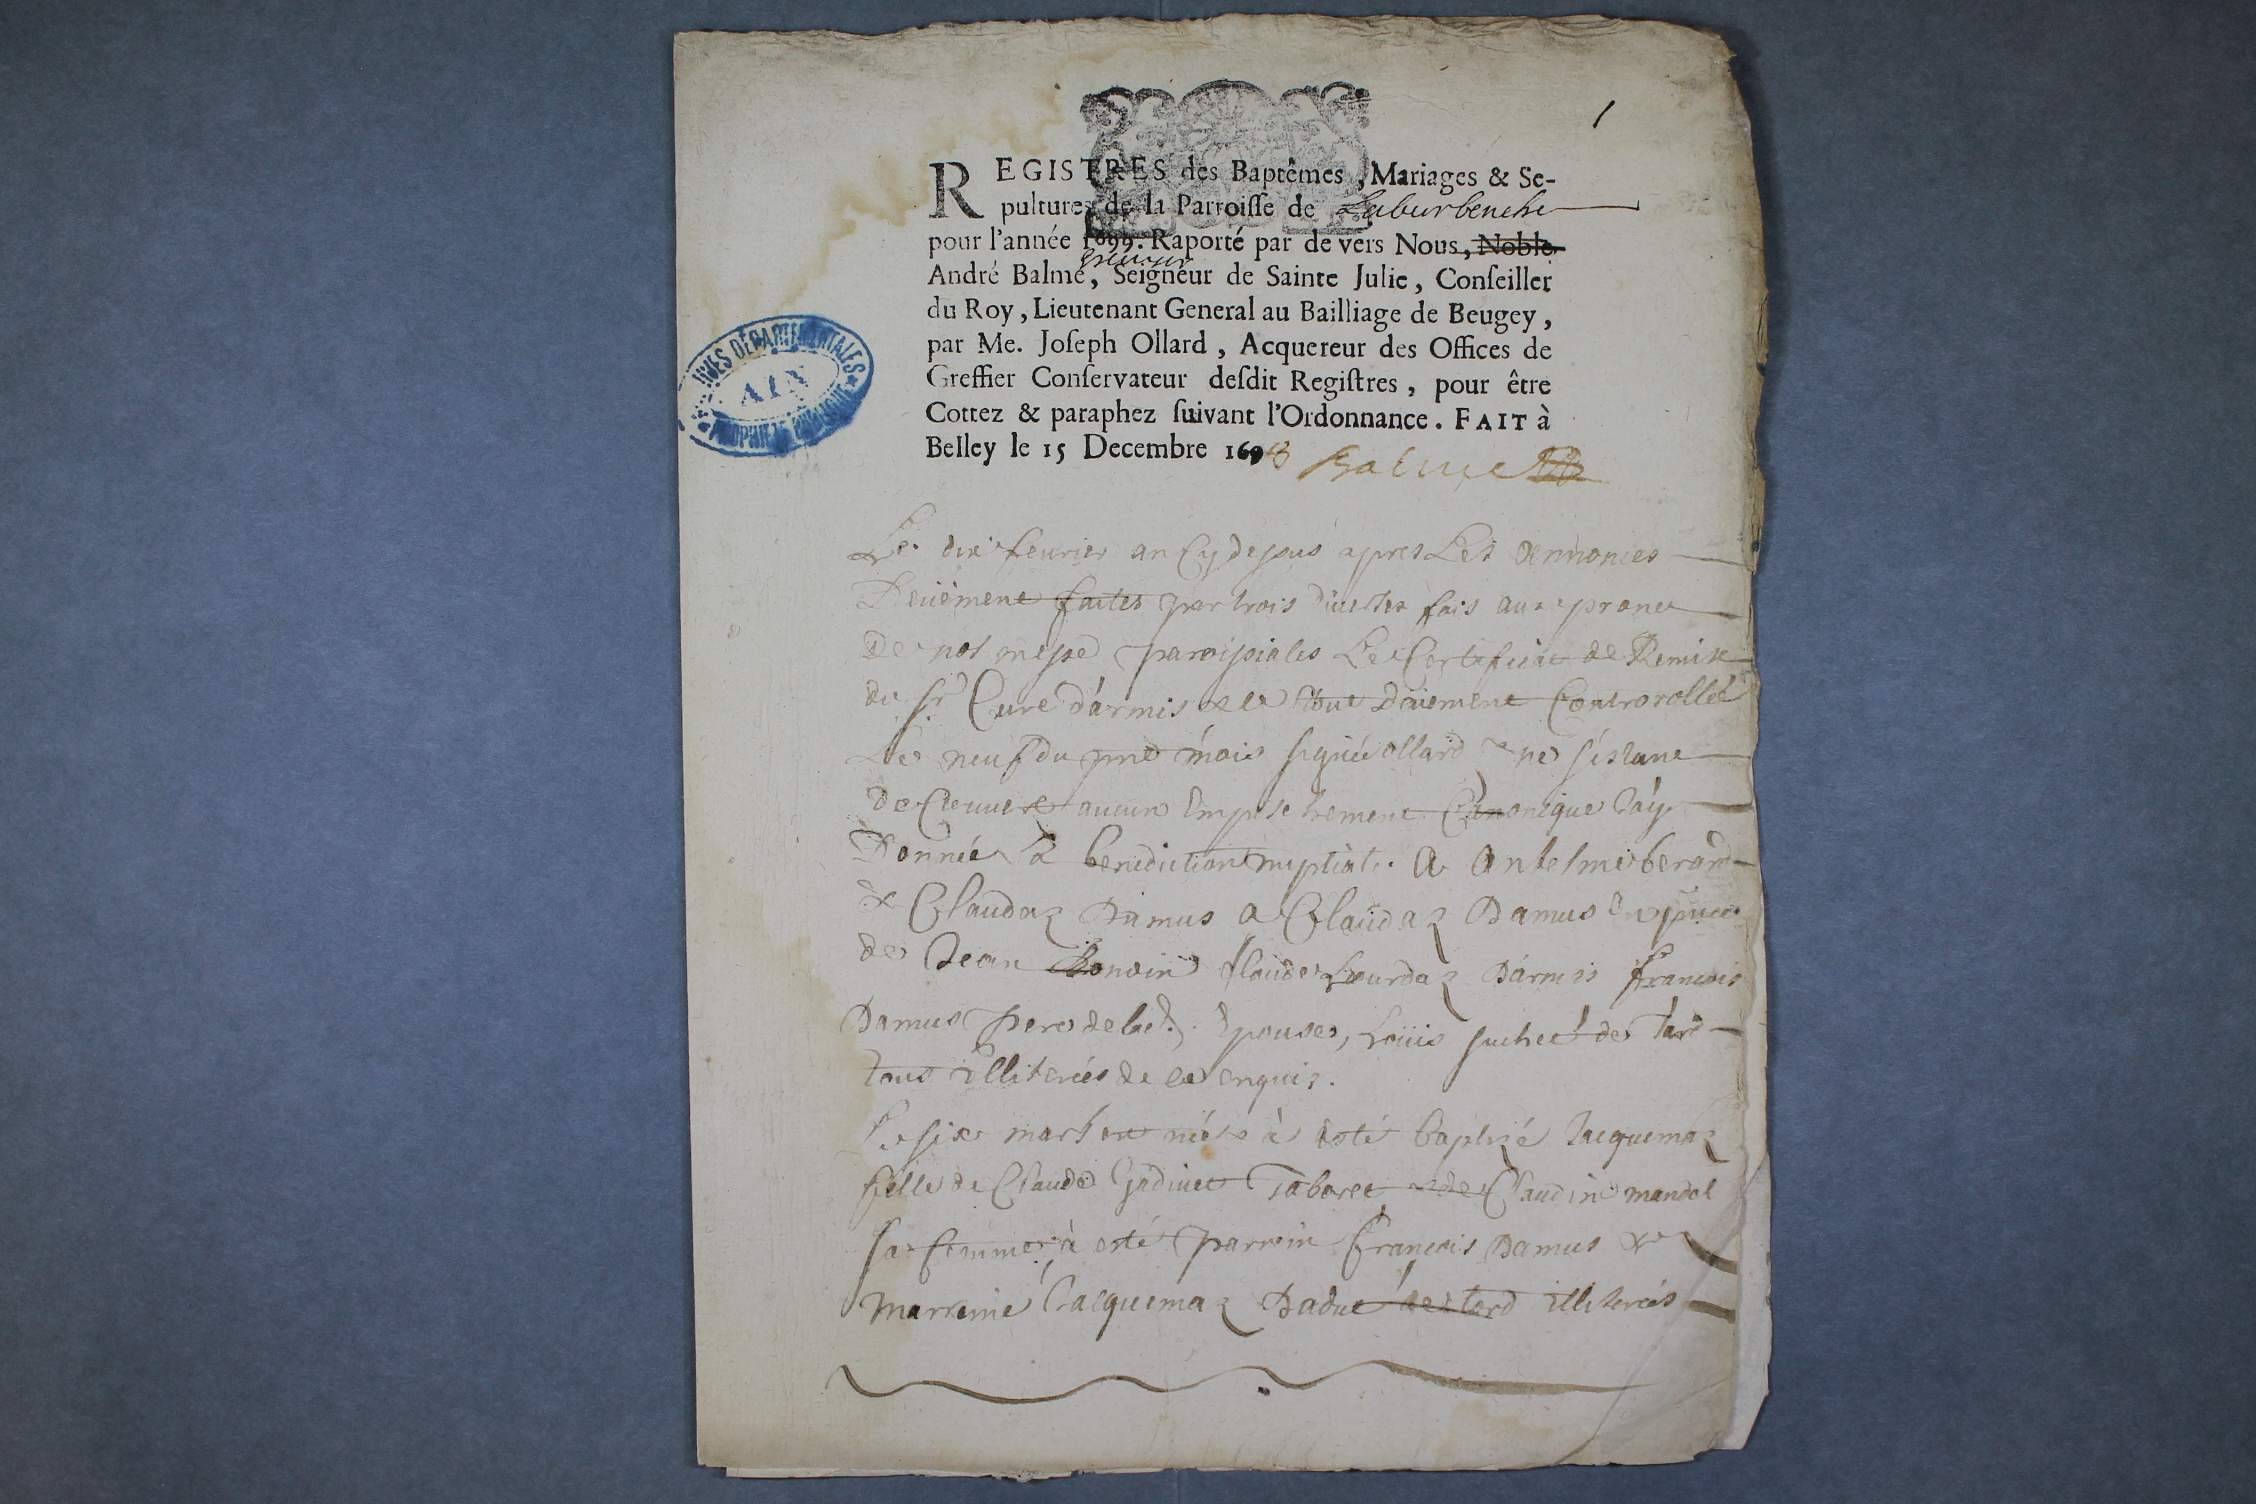 1
REGISTRES des Baptêmes, Mariages & Se-
pultures de la Parroisse de Laburbenche
pour l'année 1699. Raporté par de vers Nous, Noble
André Balme, Seigneur de Sainte Julie, Conseiller
du Roy, Lieutenant General au Bailliage de Beugey,
par Me. Joseph Ollard, Acquereur des Offices de
Greffier Conservateur desdit Registres, pour être
Cottez & paraphez suivant l'Ordonnance. FAIT à
Belley le 15 Decembre 1698 Balme
DEPARTEMENTALES
AIN
PROPRIETE PUBLIQUE
Le dix feurier an Cy dessus apres Les Annonces
Deüement faites par trois diuerses fois aux prones
De nos messe paroissiales Le Certificat de Remise
du Sr Cure d'armis le tout düement Controrollée
Le neuf du pnt mois signé ollard ne s'estant
De Couuert aucun Empechement Canonique J'ay
Donnée La benediction nuptiale A Antelme berard
& Claudaz Damus a Claudaz Damus
de Jean bonoin Claude Dármis françois
Damus pere de lad. Epouse, Loüis suchet de
tous Illiterés de ce enquis.
Le six mars à esté baptizé Jacquemaz
fille de Claude Taboret & de Claudine mandol
sa femme, à esté parrein françois Damus &
Marreine Jacquemaz Badué de tard Illiterés